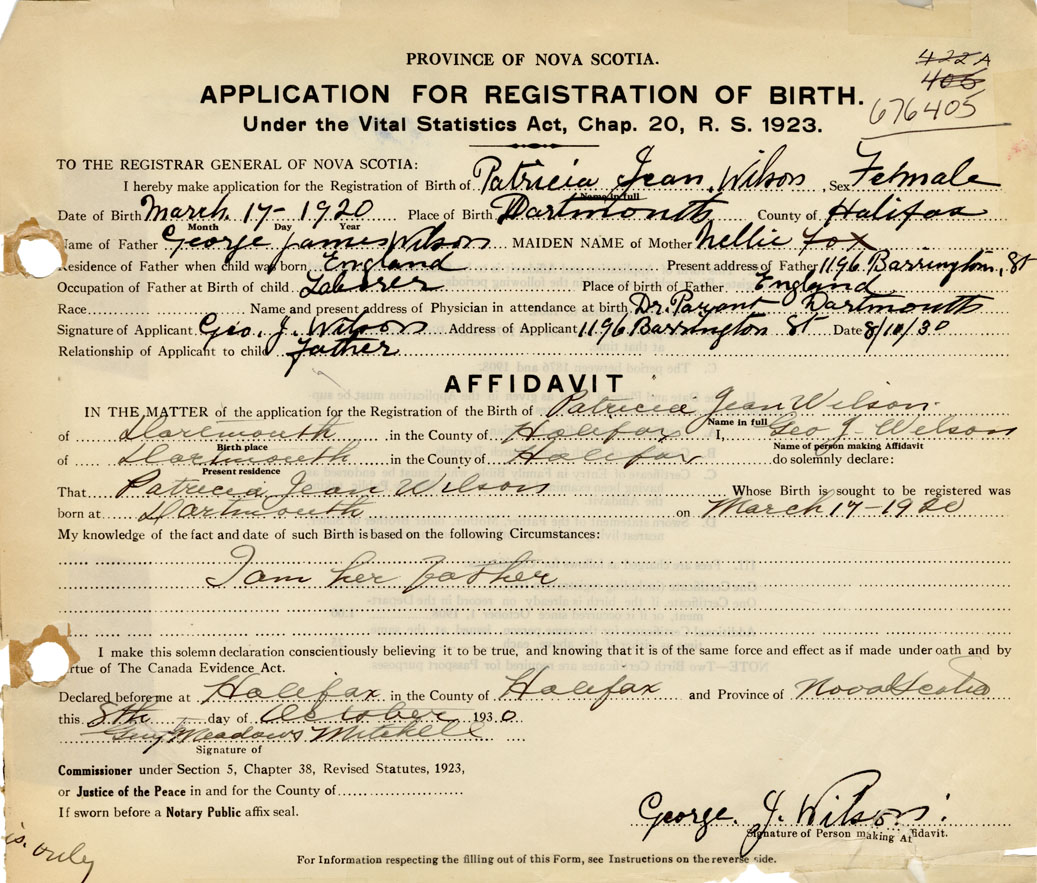 PROVINCE OF NOVA SCOTIA.
422A
406
676405
APPLICATION FOR REGISTRATION OF BIRTH.
Under the Vital Statistics Act, Chap. 20, R. S. 1923.
TO THE REGISTRAR GENERAL OF NOVA SCOTIA:
I hereby make application for the Registration of Birth of Patricia Jean Wilson, Sex Female
Name in full
Date of Birth March 17- 1920 Place of Birth Dartmouth County of Halifax
Month Day Year
Name of Father George James Wilson MAIDEN NAME of Mother Nellie Fox
Residence of Father when child was born England Present address of Father 1196 Barrington, St
Occupation of Father at Birth of child Laborer Place of birth of Father England
Race Name and present address of Physician in attendance at birth Dr. Dartmouth
Signature of Applicant Geo. J. Wilson Address of Applicant 1196 Barrington St Date 8/10/30
Relationship of Applicant to child Father
AFFIDAVIT
IN THE MATTER of the application for the Registration of the Birth of Patricia Jean Wilson
Name in full
of Dartmouth in the County of Halifax I, Geo J. Wilson
Birth place Name of person making Affidavit
of Dartmouth in the County of Halifax do solemnly declare:
Present residence
That Patricia Jean Wilson Whose Birth is sought to be registered was
born at Dartmouth on March 17-1920
My knowledge of the fact and date of such Birth is based on the following Circumstances:
I am her father
I make this solemn declaration conscientiously believing it to be true, and knowing that it is of the same force and effect as if made under oath and by
rtue of The Canada Evidence Act.
Declared before me at Halifax in the County of Halifax and Province of Nova Scotia
this 8th day of October 1930
Guy Meadows Mitchell
Signature of
Commissioner under Section 5, Chapter 38, Revised Statutes, 1923,
or Justice of the Peace in and for the County of
If sworn before a Notary Public affix seal.
George. J. Wilson.
Signature of Person making Affidavit.
is. only
For Information respecting the filling out of this Form, see Instructions on the reverse side.